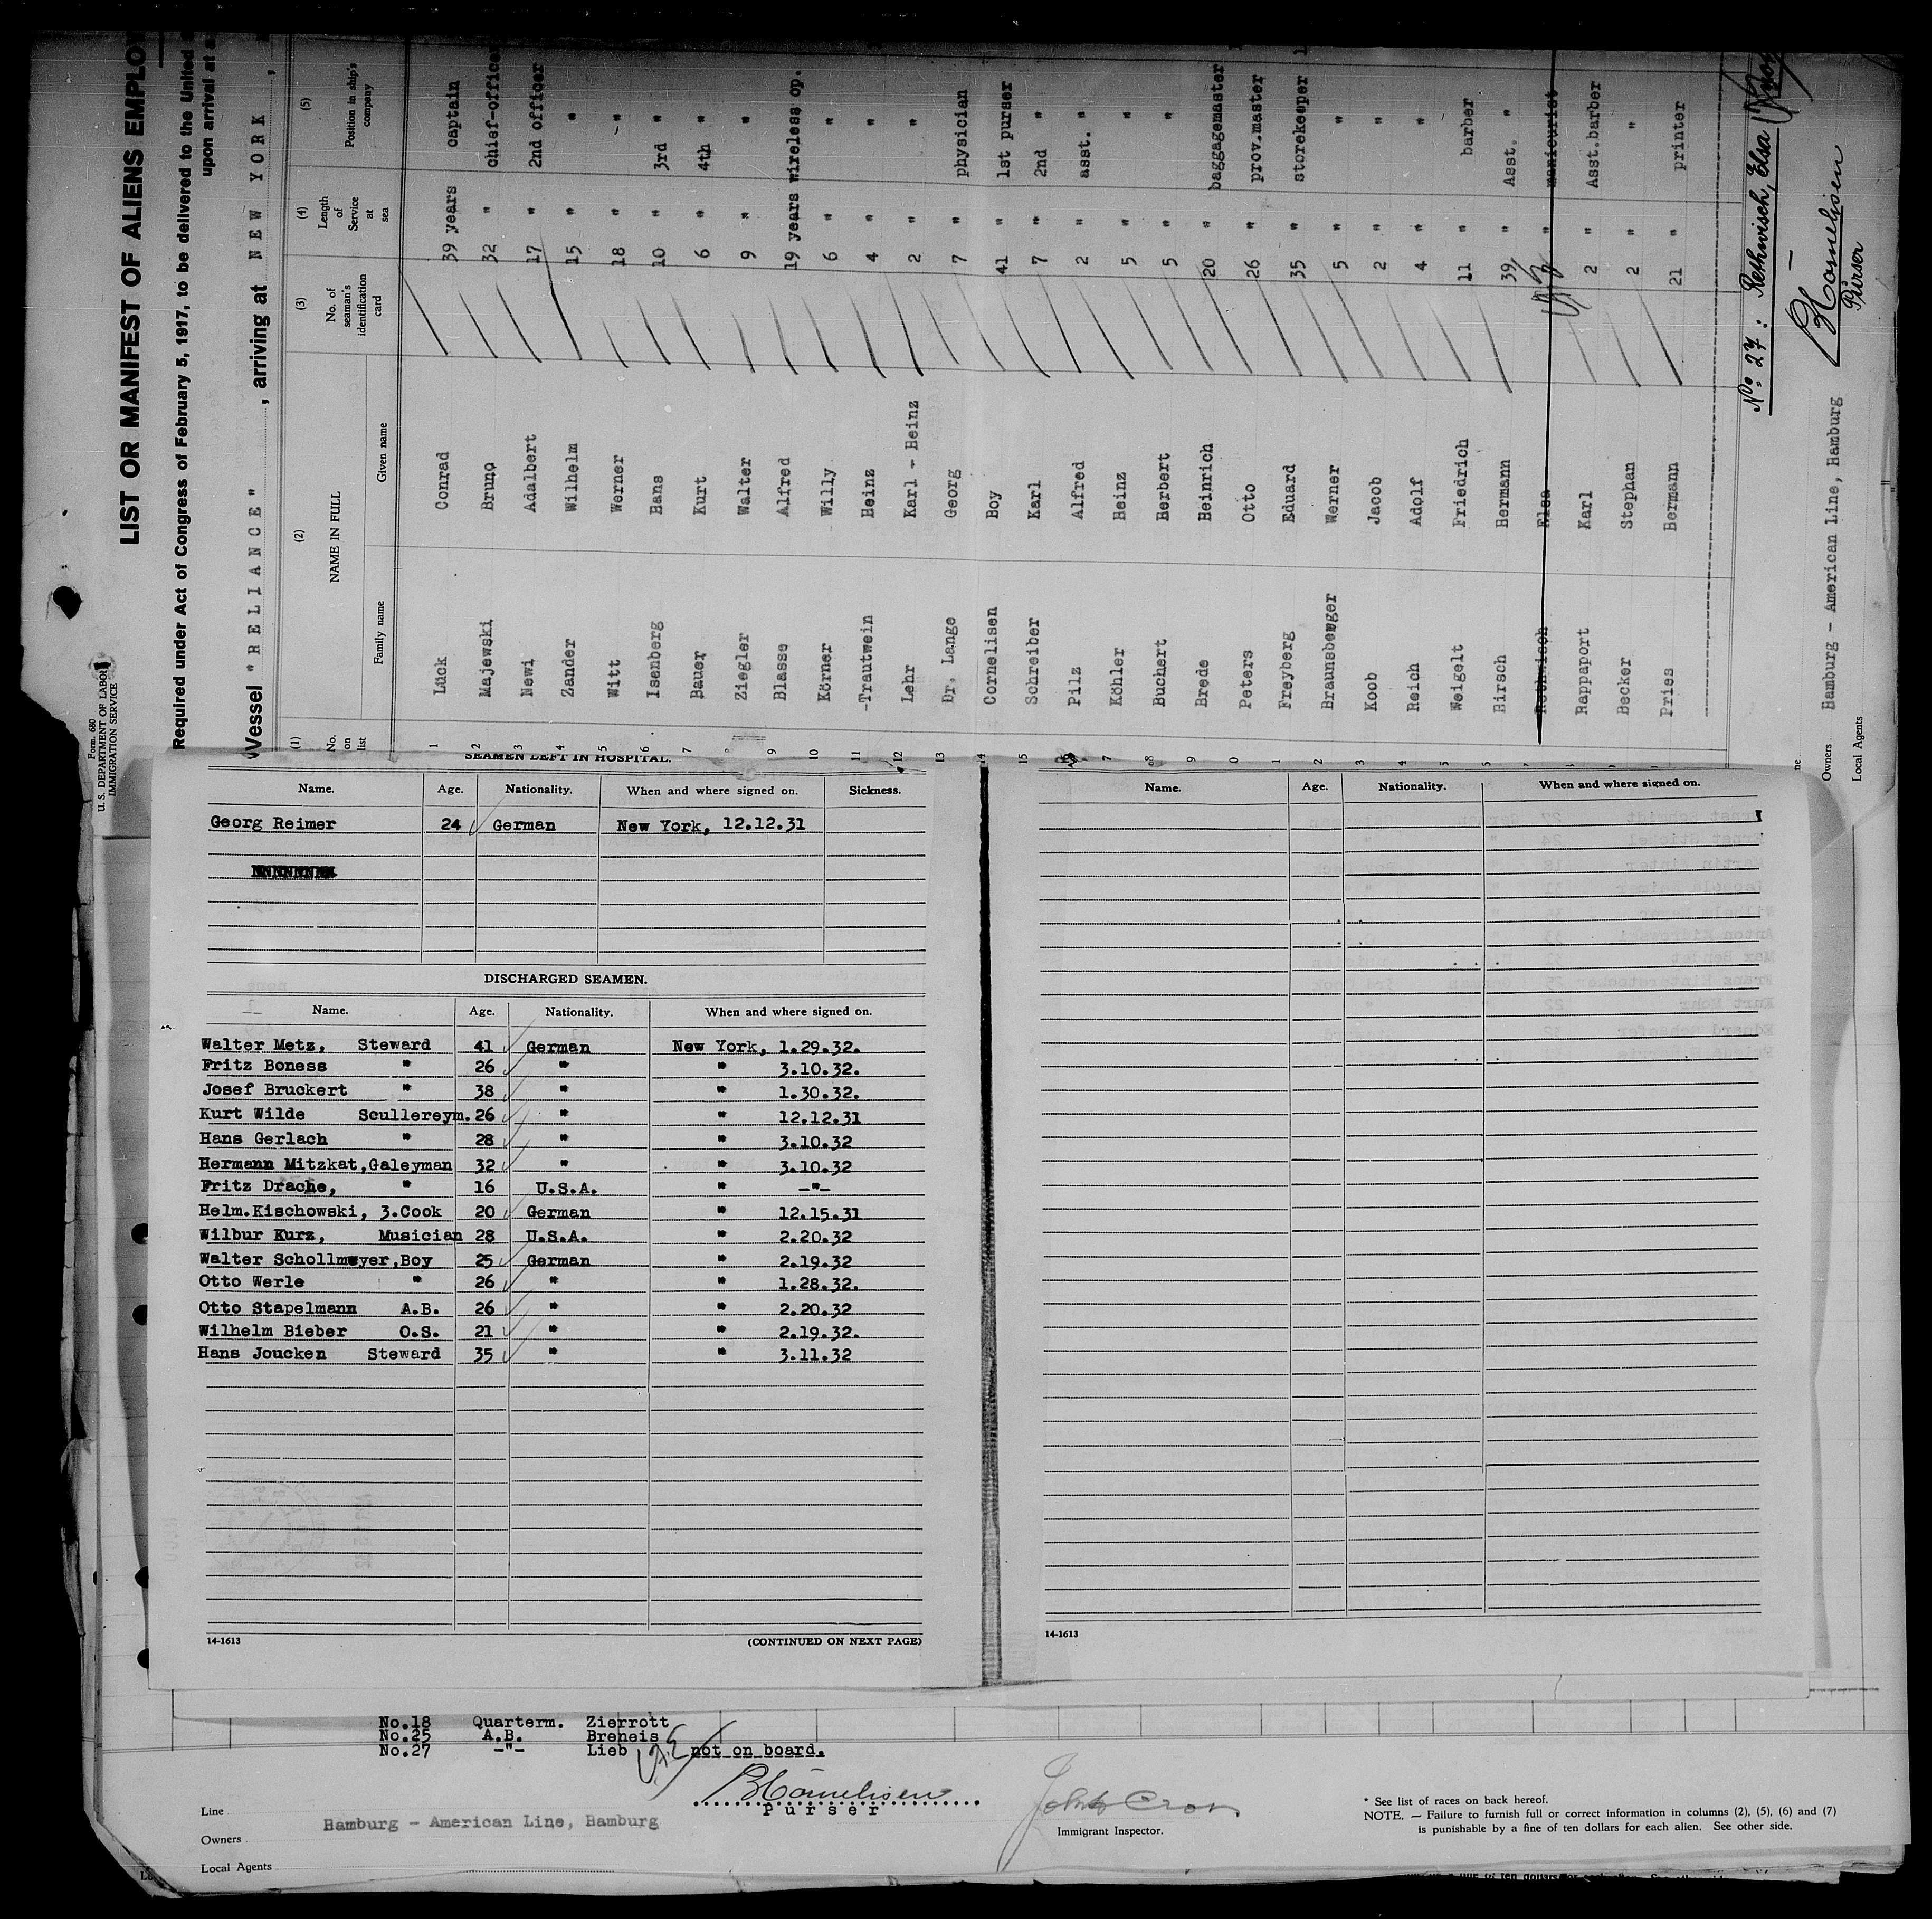 Form. 680
U. S. DEPARTMENT OF LABOR
IMMIGRATION SERVICE
LIST OR MANIFEST OF ALIENS EMPLO
Required under Act of Congress of February 5, 1917, to be delivered to the United
upon arrival at a
Vessel "RELIANCE" , arriving at NEW YORK ,
(1) (2) (3) (4) (5)
No. on list NAME IN FULL No. of seaman's identification card Length of Service at sea Position in ship's company
Family name Given name
1 Lück Conrad 39 years captain
2 Majewski Bruno 32 " chief-office
3 Newi Adalbert 17 " 2nd officer
4 Zander Wilhelm 15 " "
5 Witt Werner 18 " "
6 Isenberg Hans 10 " 3rd "
7 Bauer Kurt 6 " 4th "
8 Ziegler Walter 9 " "
9 Blasse Alfred 19 years wireless op.
10 Körner Willy 6 " "
11 -Trautwein Heinz 4 " "
12 Lehr Karl - Heinz 2 " "
13 Dr. Lange Georg 7 " physician
14 Cornelisen Boy 41 " 1st purser
15 Schreiber Karl 7 " 2nd "
16 Pilz Alfred 2 " asst. "
7 Köhler Heinz 5 " "
8 Buchert Herbert 5 " "
9 Brede Heinrich 20 " baggagemaster
0 Peters Otto 26 " prov.master
1 Freyberg Eduard 35 " storekeeper 1
2 Braunsberger Werner 5 " "
3 Koob Jacob 2 " "
4 Reich Adolf 4 " "
5 Weigelt Friedrich 11 " barber
Hirsch Hermann 39 " Asst. "
Rethwisch Elsa " manicurist
Rappaport Karl 2 " Asst.barber
Becker Stephan 2 " "
Pries Hermann 21 " printer
No 27: Rethwisch, Elsa
BCornelisen
Purser
ne
Owners Hamburg - American Line, Hamburg
Local Agents
SEAMEN LEFT IN HOSPITAL.
Name. Age. Nationality. When and where signed on. Sickness.
Georg Reimer 24 German New York, 12.12.31
DISCHARGED SEAMEN.
Name. Age. Nationality. When and where signed on.
Walter Metz, Steward 41 German New York, 1.29.32.
Fritz Boness " 26 " " 3.10.32.
Josef Bruckert " 38 " " 1.30.32.
Kurt Wilde Scullereym. 26 " " 12.12.31
Hans Gerlach " 28 " " 3.10.32
Hermann Mitzkat,Galeyman 32 " " 3.10.32
Fritz Drache, " 16 U.S.A. " -"-
Helm.Kischowski, 3.Cook 20 German " 12.15.31
Wilbur Kurz, Musician 28 U.S.A. " 2.20.32
Walter Schollmeyer,Boy 25 German " 2.19.32
Otto Werle " 26 " " 1.28.32.
Otto Stapelmann A.B. 26 " " 2.20.32
Wilhelm Bieber O.S. 21 " " 2.19.32.
Hans Joucken Steward 35 " " 3.11.32
14-1613 (CONTINUED ON NEXT PAGE)
Name. Age. Nationality. When and where signed on.
14-1613
No.18 Quarterm. Zierrott
No.25 A.B. Breheis
No.27 -"- Lieb not on board.
BCornelisen
Purser
Line
Owners Hamburg - American Line, Hamburg
Local Agents
Immigrant Inspector.
* See list of races on back hereof.
NOTE. — Failure to furnish full or correct information in columns (2), (5), (6) and (7)
is punishable by a fine of ten dollars for each alien. See other side.